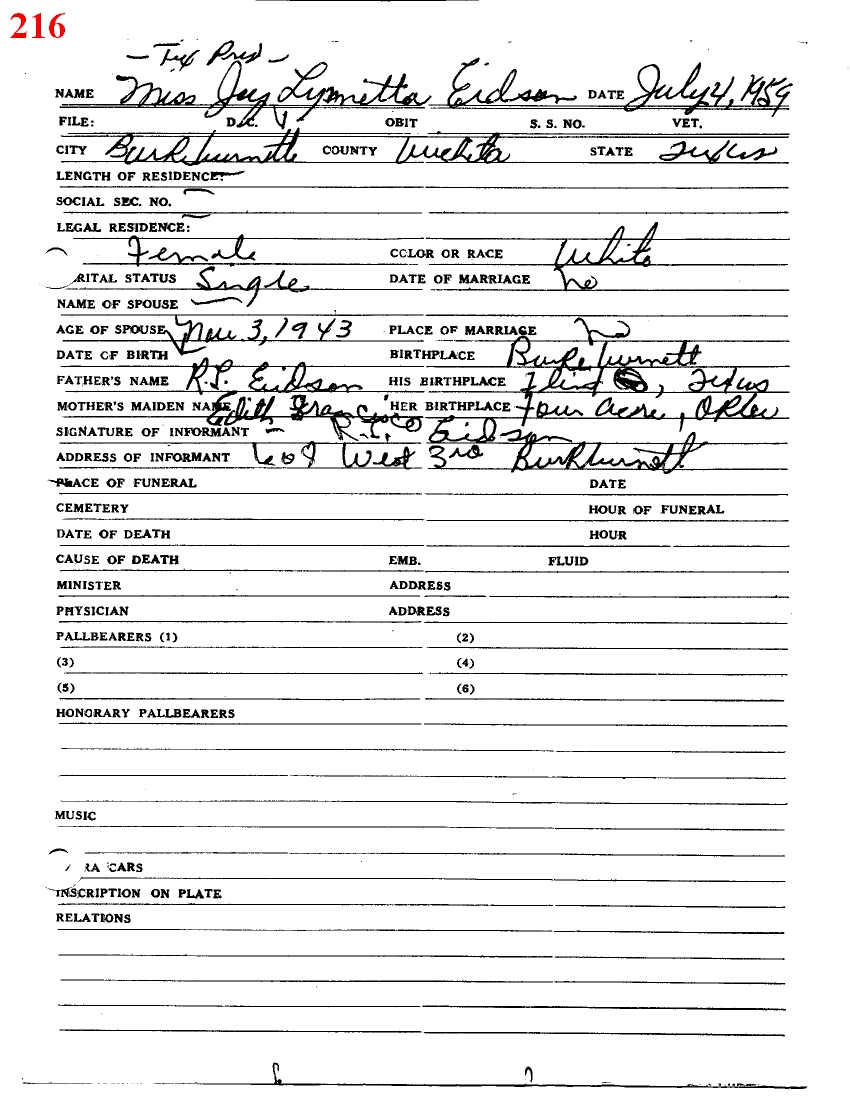 216
NAME Miss Joy Lynnetta Eidson DATE July 4, 1959
FILE: D.C. OBIT S. S. NO. VET.
CITY Burkburnett COUNTY Wichita STATE Texas
LENGTH OF RESIDENCE:
SOCIAL SEC. NO.
LEGAL RESIDENCE:
Female COLOR OR RACE White
RITAL STATUS Single DATE OF MARRIAGE no
NAME OF SPOUSE
AGE OF SPOUSE Nov. 3, 1943 PLACE OF MARRIAGE no
DATE OF BIRTH BIRTHPLACE Burkburnett
FATHER'S NAME R.L. Eidson HIS BIRTHPLACE Flint, Texas
MOTHER'S MAIDEN NAME Edith Francisco HER BIRTHPLACE Four Acre, Okla
SIGNATURE OF INFORMANT – R.L. Eidson
ADDRESS OF INFORMANT 609 West 3rd Burkburnett
PLACE OF FUNERAL DATE
CEMETERY HOUR OF FUNERAL
DATE OF DEATH HOUR
CAUSE OF DEATH EMB. FLUID
MINISTER ADDRESS
PHYSICIAN ADDRESS
PALLBEARERS (1) (2)
(3) (4)
(5) (6)
HONORARY PALLBEARERS
MUSIC
RA CARS
INSCRIPTION ON PLATE
RELATIONS